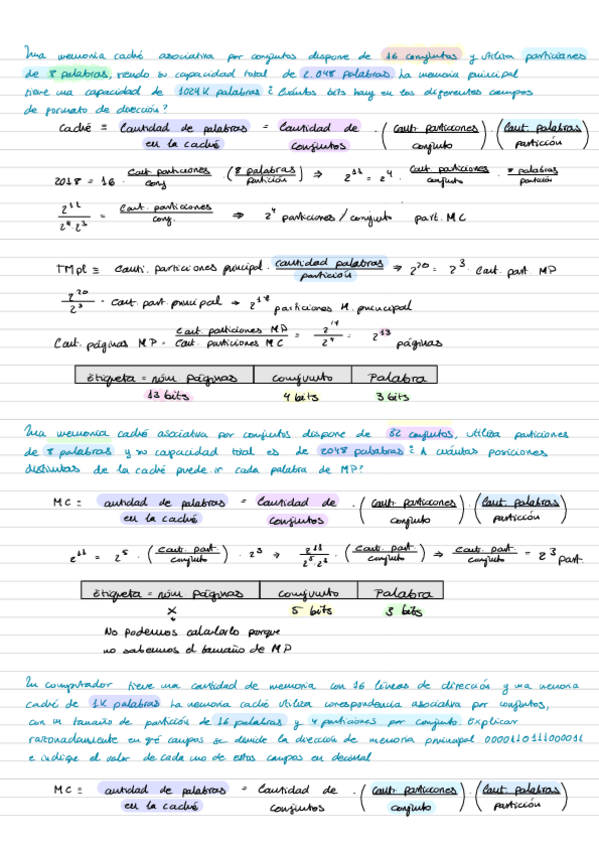 Una memoria caché asociativa por conjuntos dispone de 16 conjuntos y utiliza particiones
de 8 palabras, siendo su capacidad total de 2.048 palabras. La memoria principal
tiene una capacidad de 1024K palabras ¿Cuántos bits hay en los diferentes campos
de formato de dirección?
Caché ≡ Cantidad de palabras en la caché = Cantidad de conjuntos · (Cant. particiones / conjunto) · (Cant. palabras / partición)
2018 = 16 · Cant particiones / conj · (8 palabras / partición) ⇒ 2^11 = 2^4 · Cant. particiones / conjunto · 8 palabras / partición
2^11 / 2^4·2^3 = Cant. particiones / conj. ⇒ 2^4 particiones / conjunto part. MC
TMpl ≡ Canti. particiones principal · cantidad palabras / partición → 2^20 = 2^3 · Cant. part MP
2^20 / 2^3 · cant. part. principal → 2^17 particiones M. principal
Cant. páginas MP = Cant. particiones MP / Cant. particiones MC = 2^17 / 2^4 = 2^13 páginas
Etiqueta = núm páginas conjunto Palabra
13 bits 4 bits 3 bits
Una memoria caché asociativa por conjuntos dispone de 32 conjuntos, utiliza particiones
de 8 palabras y su capacidad total es de 2048 palabras ¿A cuántas posiciones
distintas de la caché puede ir cada palabra de MP?
MC = cantidad de palabras en la caché = Cantidad de conjuntos · (Cant. particiones / conjunto) · (Cant. palabras / partición)
2^11 = 2^5 · (Cant. part. / conjunto) · 2^3 → 2^11 / 2^5·2^3 · (Cant. part. / conjunto) ⇒ Cant. part. / conjunto = 2^3 part.
Etiqueta = núm páginas conjunto Palabra
x 5 bits 3 bits
No podemos calcularlo porque
no sabemos el tamaño de MP
Un computador tiene una cantidad de memoria con 16 líneas de dirección y una memoria
caché de 1K palabras. La memoria caché utiliza correspondencia asociativa por conjuntos,
con un tamaño de partición de 16 palabras y 4 particiones por conjunto. Explicar
razonadamente en qué campos se divide la dirección de memoria principal 0000110111000011
e indique el valor de cada uno de estos campos en decimal
MC = cantidad de palabras en la caché = Cantidad de conjuntos · (Cant. particiones / conjunto) · (Cant. palabras / partición)